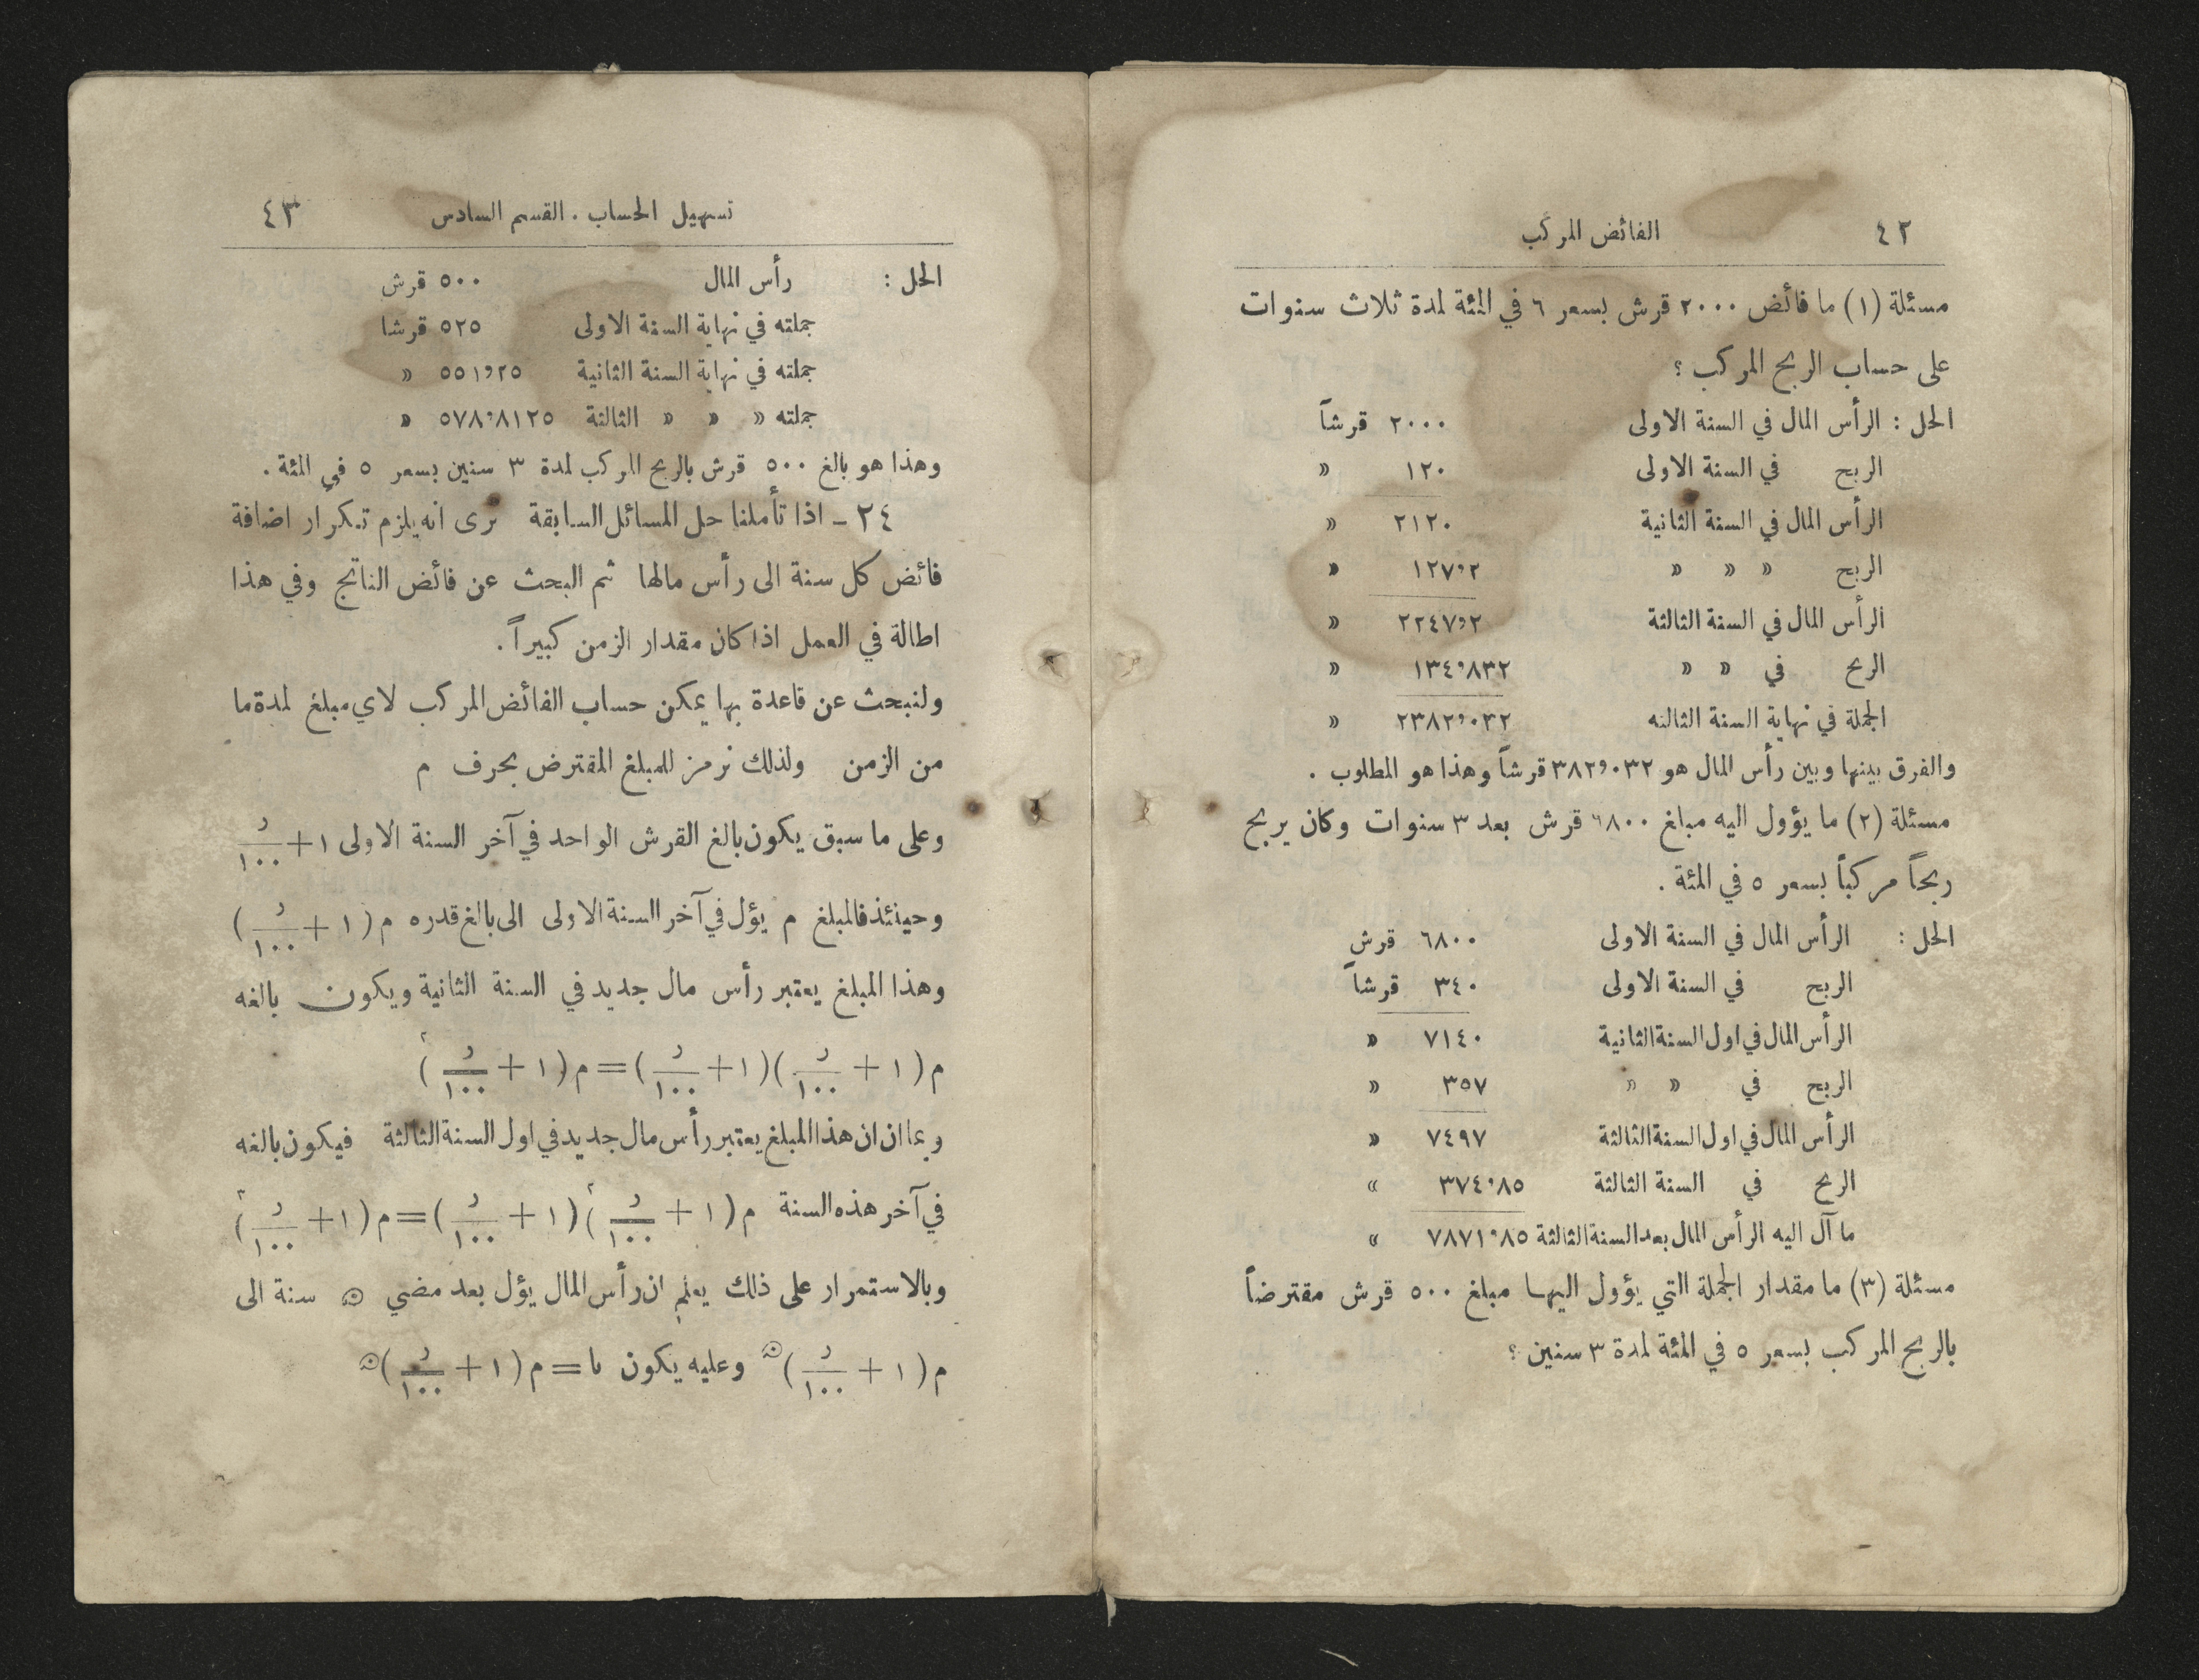 ٤٢ الفائض المركب
مسئلة (١) ما فائض ٢٠٠٠ قرش بسعر ٦ في المئة لمدة ثلاث سنوات
على حساب الربح المركب ؟
الحل : الرأس المال في السنة الاولى ٢٠٠٠ قرشاً
الربح في السنة الاولى ١٢٠ »
الرأس المال في السنة الثانية ٢١٢٠ »
الربح » » » ١٢٧٫٢ »
الرأس المال في السنة الثالثة ٢٢٤٧٫٢ »
الربح في » » ١٣٤٫٨٣٢ »
الجملة في نهاية السنة الثالثه ٢٣٨٢٫٠٣٢ »
والفرق بينها وبين رأس المال هو ٣٨٢٫٠٣٢ قرشاً وهذا هو المطلوب .
مسئلة (٢) ما يؤول اليه مبلغ ٦٨٠٠ قرش بعد ٣ سنوات وكان يربح
ربحاً مركباً بسعر ٥ في المئة .
الحل : الرأس المال في السنة الاولى ٦٨٠٠ قرش
الربح في السنة الاولى ٣٤٠ قرشاً
الرأس المال في اول السنة الثانية ٧١٤٠ »
الربح في » » ٣٥٧ »
الرأس المال في اول السنة الثالثة ٧٤٩٧ »
الربح في السنة الثالثة ٣٧٤٫٨٥ »
ما آل اليه الرأس المال بعد السنة الثالثة ٧٨٧١٫٨٥ »
مسئلة (٣) ما مقدار الجملة التي يؤول اليها مبلغ ٥٠٠ قرش مقترضاً
بالربح المركب بسعر ٥ في المئة لمدة ٣ سنين ؟
تسهيل الحساب . القسم السادس ٤٣
الحل : رأس المال ٥٠٠ قرش
جملته في نهاية السنة الاولى ٥٢٥ قرشا
جملته في نهاية السنة الثانية ٥٥١٫٢٥ »
جملته » » » الثالثة ٥٧٨٫٨١٢٥ »
وهذا هو بالغ ٥٠٠ قرش بالربح المركب لمدة ٣ سنين بسعر ٥ في المئة .
٢٤ – اذا تأملنا حل المسائل السابقة نرى انه يلزم تكرار اضافة
فائض كل سنة الى رأس مالها ثم البحث عن فائض الناتج وفي هذا
اطالة في العمل اذا كان مقدار الزمن كبيراً .
ولنبحث عن قاعدة بها يمكن حساب الفائض المركب لاي مبلغ لمدة ما
من الزمن ولذلك نرمز للمبلغ المقترض بحرف م
وعلى ما سبق يكون بالغ القرش الواحد في آخر السنة الاولى ١ + ر/١٠٠
وحينئذ فالمبلغ م يؤل في آخر السنة الاولى الى بالغ قدره م (١ + ر/١٠٠)
وهذا المبلغ يعتبر رأس مال جديد في السنة الثانية ويكون بالغه
م (١ + ر/١٠٠)(١ + ر/١٠٠) = م (١ + ر/١٠٠)٢
وبما ان ان هذا المبلغ يعتبر رأس مال جديد في اول السنة الثالثة فيكون بالغه
في آخر هذه السنة م (١ + ر/١٠٠)٢ (١ + ر/١٠٠) = م (١ + ر/١٠٠)٢
وبالاستمرار على ذلك يعلم ان رأس المال يؤل بعد مضي ه سنة الى
م (١ + ر/١٠٠)ه وعليه يكون ما = م (١ + ر/١٠٠)ه